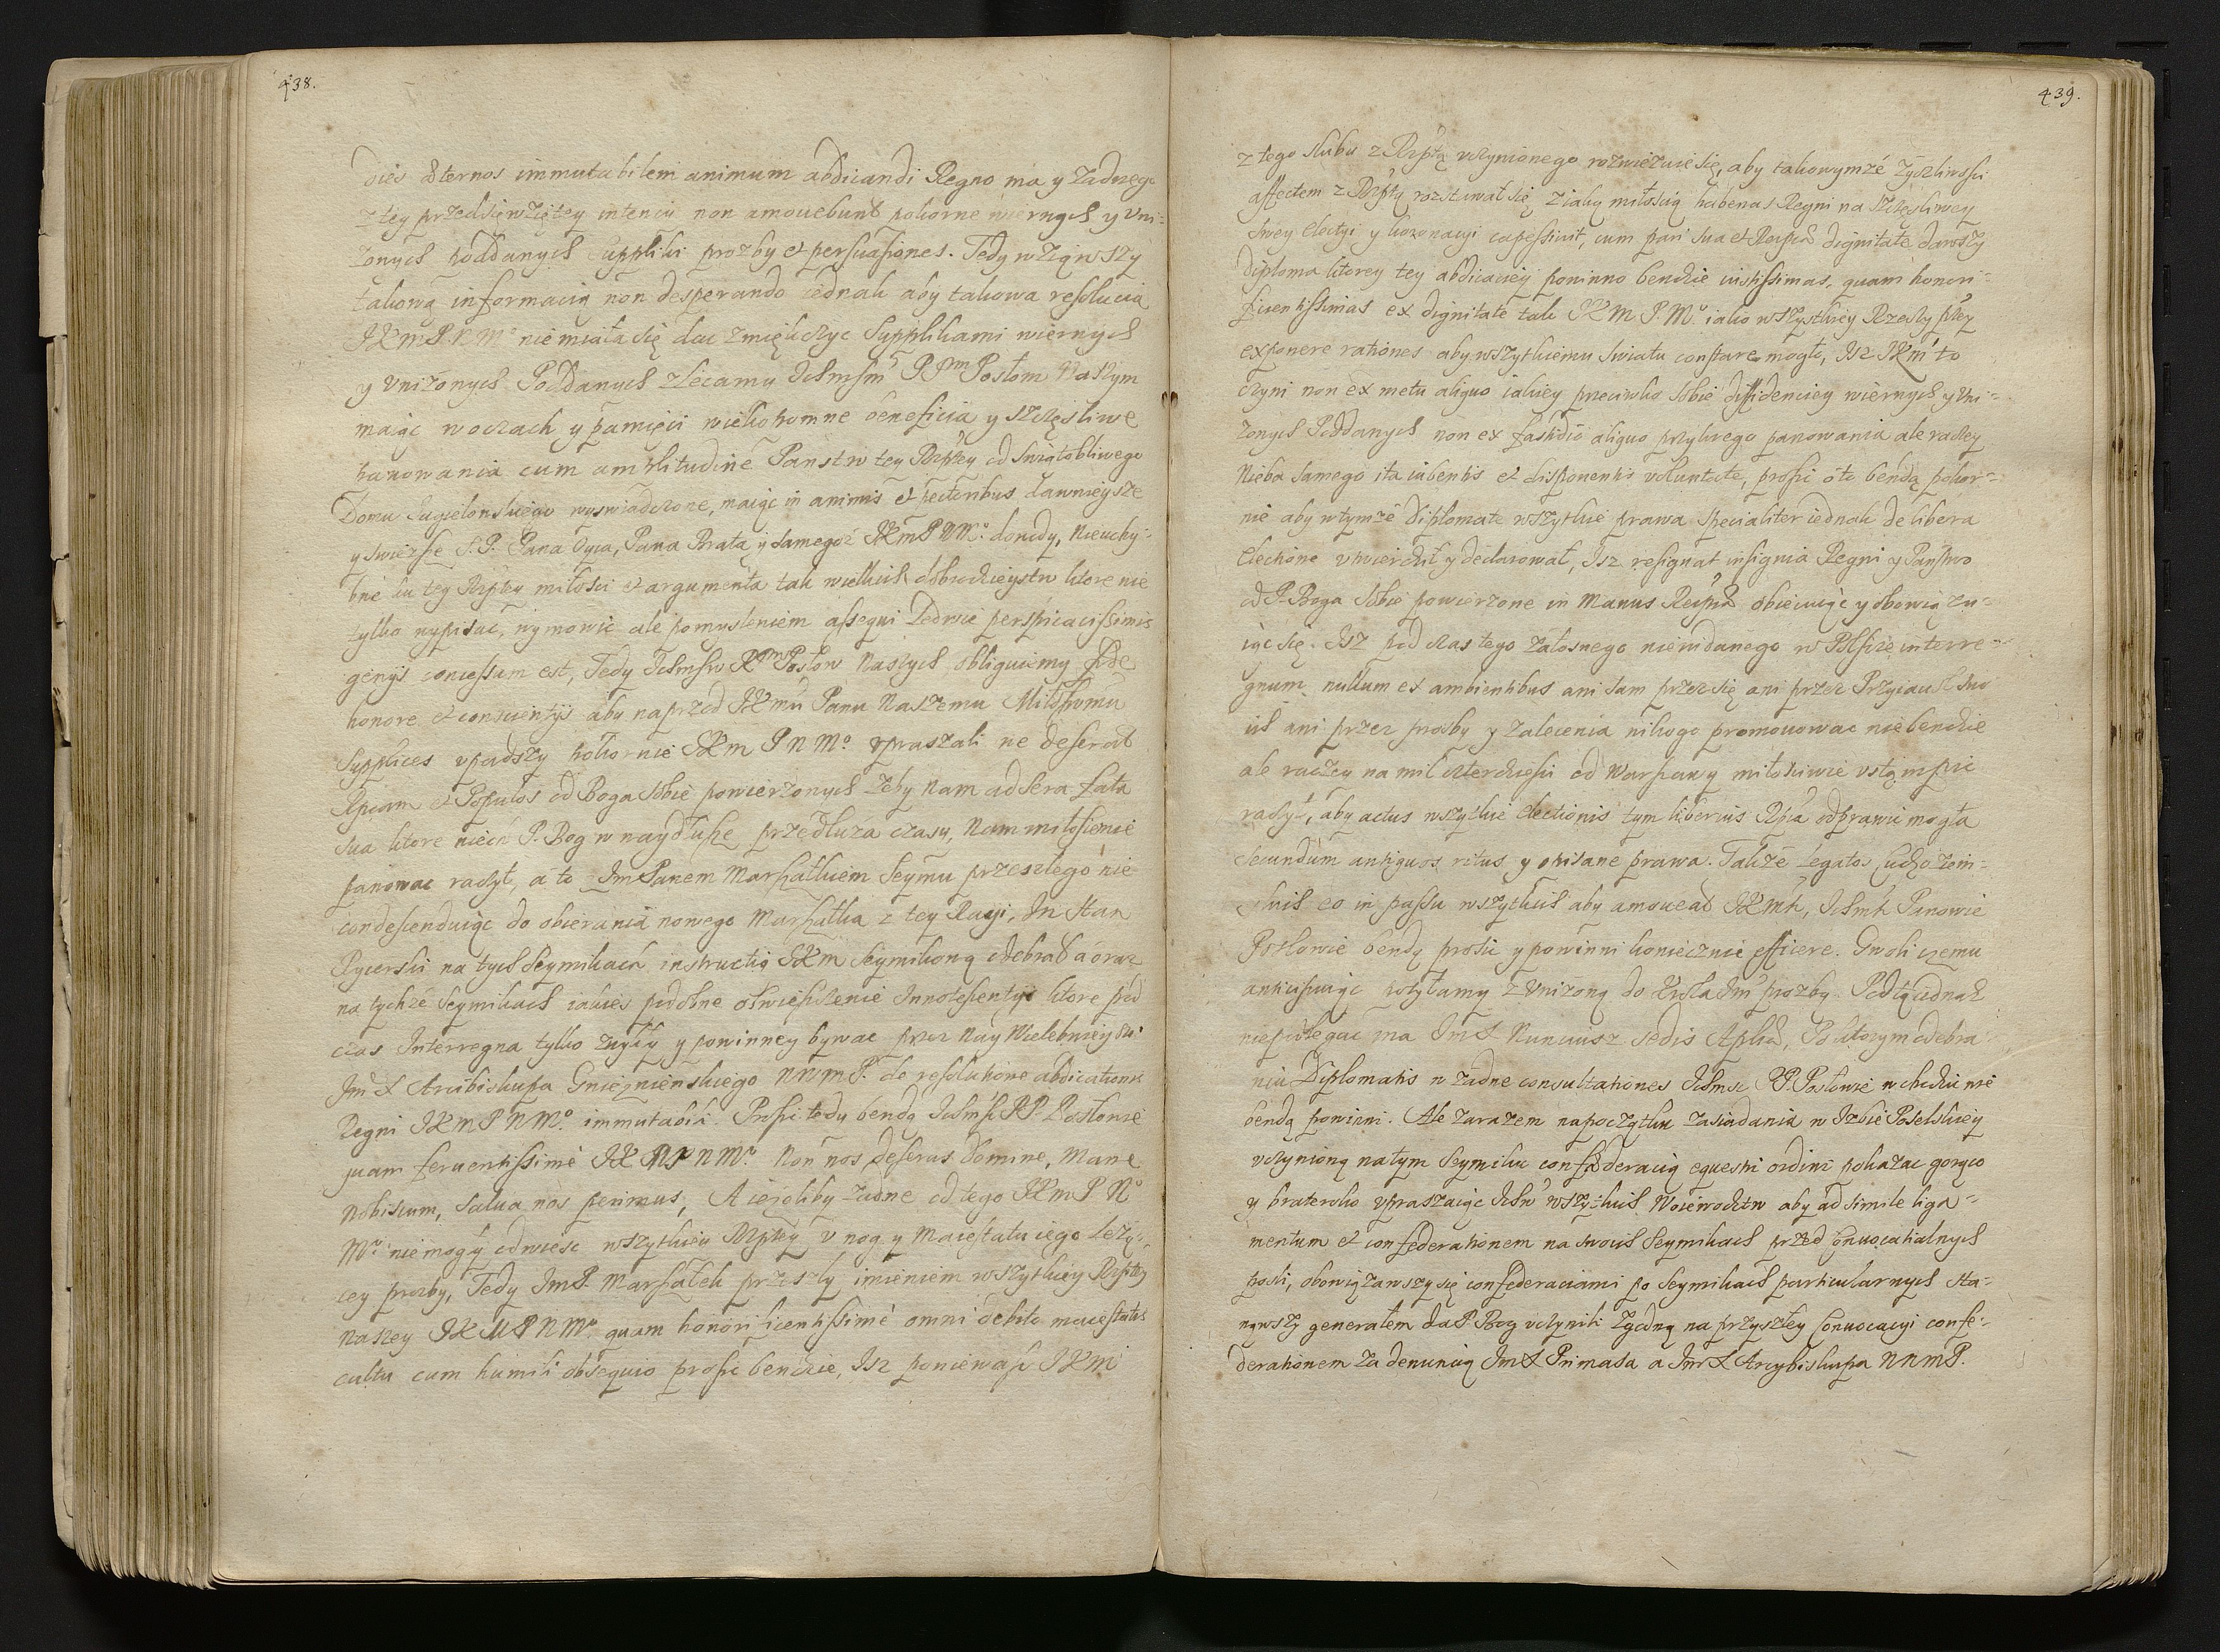 438.
dies æternos immutabilem animum abdicandi Regno ma y żadnego
z tey przedsięwziętey intenciÿ non amouebunt pokorne wiernych y vni-
żonych poddanych suppliki prozby et persuasiones. Tedy wziąwszy
takową informacią non desperando iednak aby takowa resolucia
JKmP N Mº nie miała się dac zmiękczyc supplikami wiernych
y vniżonych Poddanych zlecamy Ichmsm PPnm Posłom Naszym
maiąc w oczach y pamięci wiekopomne beneficia y szczęsliwe
panowania cum amplitudine Panstw tey Rzptey od swiątobliwego
Domu Jagielonskiego wyswiadczone, maiąc in animis et pectoribus dawnieysze
y swieższe S.P. Pana Oyca, Pana Brata y samegoż JKmP N Mº. dowody, nieuchy-
bne ku tey Rzptey miłosci et argumenta tak wielkich dobrodzieystw ktore nie
tylko wypisac, wymowic ale pomysleniem assequi ledwie perspicacissimis
genijs concessum est, Tedy Ichmsciw PPnw Posłow Naszych obliguiemy fide
honore et conscientijs aby naprzod JKmci Panu Naszemu Miłosciwemu
supplices vpadszy pokornie JKm P N Mº. vpraszali ne deserat
Rpcam et Populos od Boga sobie powierzonych żeby nam ad sera fata
sua ktore niech P. Bog w naydłuzsze przedłuża czasy, Nam miłosiernie
panowac raczył, a to ImPanem Marszałkiem Seymu przeszłego nie
condescenduiąc do obierania nowego Marszałka z tey Racyi, Iz stan
Rycerski na tych Seymikach instructią JKm Seymikową odebrał a oraz
na tychże Seymikach iakies podobne obwiesczenie Innotescentyi ktore pod
czas Interregna tylko zwykły y powinney bywac przez Nay Wielebnieyszº
Im X Arcibiskupa Gnieznienskiego NNMP. de resolutione abdicationis
Regni JKmP N Mº. immutabili. Prosic tedy bendą Ichmsc PP. Posłowie
quam feruentissime JK MP N Mº. Non nos deseras Domine, Mane
nobiscum, salua nos perimus, A ieżeliby żadne od tego JKmP Nº
Mº. nie mogły odwiesc wszytkiey Rzptey v nog y Maiestatu iego leżą-
cey prozby, Tedy ImP. Marszałek przeszły imieniem wszytkiey Rzptey
naszey JK MP N Mº. quam honorificentissime omni debito maiestatis
cultu cum humili obsequio prosic bendzie, Isz poniewasz JKm
439.
z tego slubu z Rzptą vczynionego rozwięzuie się, aby takowymże życzliwosci
affectem z Rzptą rozstawał się z iaką miłoscią habenas Regni na szczęsliwey
swey Electyi y koronacyi capessivit, cum pari sua et Reipub. dignitate dawszy
diploma ktorey tey abdicaciey powinno bendzie iustissimas, quam honori-
ficentissimas ex dignitate tak JKm P. Mº. iako wszystkiey Rzeczy ptey
exponere rationes aby wszytkiemu swiatu constare mogło, Isz JKm to
czyni non ex metu aliquo iakiey przeciwko sobie diffidenciey wiernych y vni-
żonych Poddanych non ex fastidio aliquo przykrego panowania ale raczey
Nieba samego ita iubentis et disponentis voluntate, prosic o to bendą pokor-
nie aby wtymże Diplomate wszytkie prawa specialiter iednak de libera
Electione vtwierdził y declarował, Isz resignat insignia Regni y Panstwo
od P. Boga sobie powierzone in Manus Reipub. obiecuiąc y obowiązu-
iąc się. Isz pod czas tego żałosnego niewidanego w Polszcze interre-
gnum nullum ex ambientibus ani sam przez się ani przez Przyiaciół swo
ich ani przez prozby y zalecenia nikogo promowowac nie bendzie
ale raczey na mil czterdziesci od Warszawy miłosciwie vstąmpic
raczył, aby actus wszytkie Electionis tym liberius Rpta odprawic mogła
secundum antiquos ritus y opisane prawa. Takze Legatos Cudzoziem-
skich eo in passu wszytkich aby amoueat JKmsc, Ichmsc Panowie
Posłowie bendą prosic y powinni koniecznie efficere. Gwoli czemu
anticipuiąc posyłamy z vniżoną do Xsła Im prozby. Podtą iednak
niepodlegac ma Im X Nunciusz sedis Aplicæ, Po ktorym odebra
niu Diplomatis w żadne consultationes Ichmsc PP. Posłowie wchodzic nie
bendą powinni. Ale zarazem na początku zasiadania w Izbie Poselskiey
vczynioną na tym Seymiku confæderacią equestri ordini pokazac gorąco
y bratersko vpraszaiąc Ichm wszytkich Woiewodztw aby ad simile liga-
mentum et confederationem na swoich Seymikach przed Conuocatialnych
poszli, obowiązawszy się confederaciami po Seymikach particularnych sta-
nąwszy generałem da P. Bog vczynili zgodną na przyszłey Conuocacyi confe-
derationem za denuncią Im X Primasa a Im X Arcybiskupa NNmP.